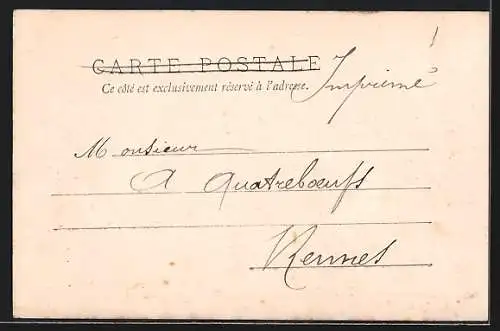 CARTE POSTALE Imprimé
Ce côté est exclusivement réservé à l'adresse.
Monsieur
A Quatreboeufs
Rennes